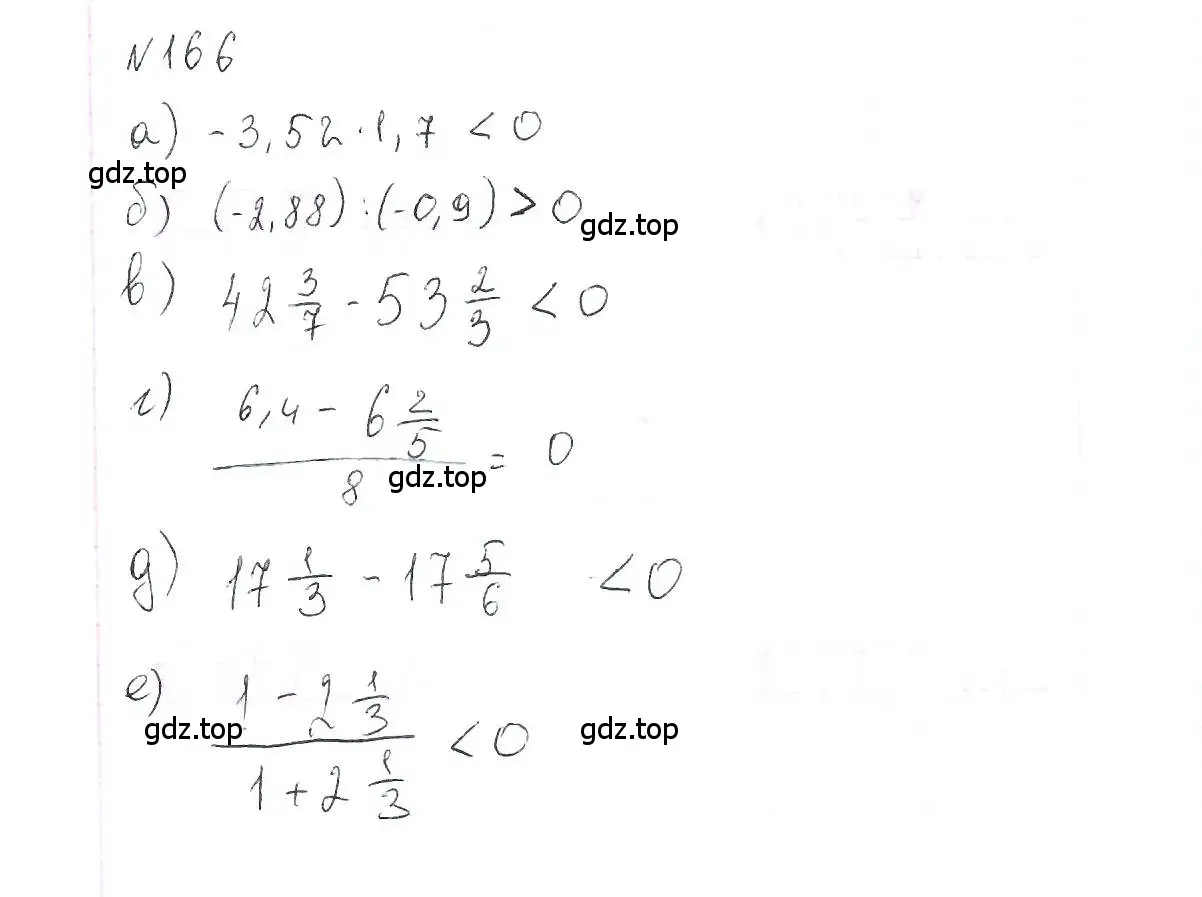 N 166
а) -3,52 · 1,7 < 0
gdz.top
б) (-2,88) : (-0,9) > 0
gdz.top
в) 42 3/7 - 53 2/3 < 0
г) (6,4 - 6 2/5) / 8 = 0
gdz.top
д) 17 1/3 - 17 5/6 < 0
е) (1 - 2 1/3) / (1 + 2 1/3) < 0
gdz.top
gdz.top